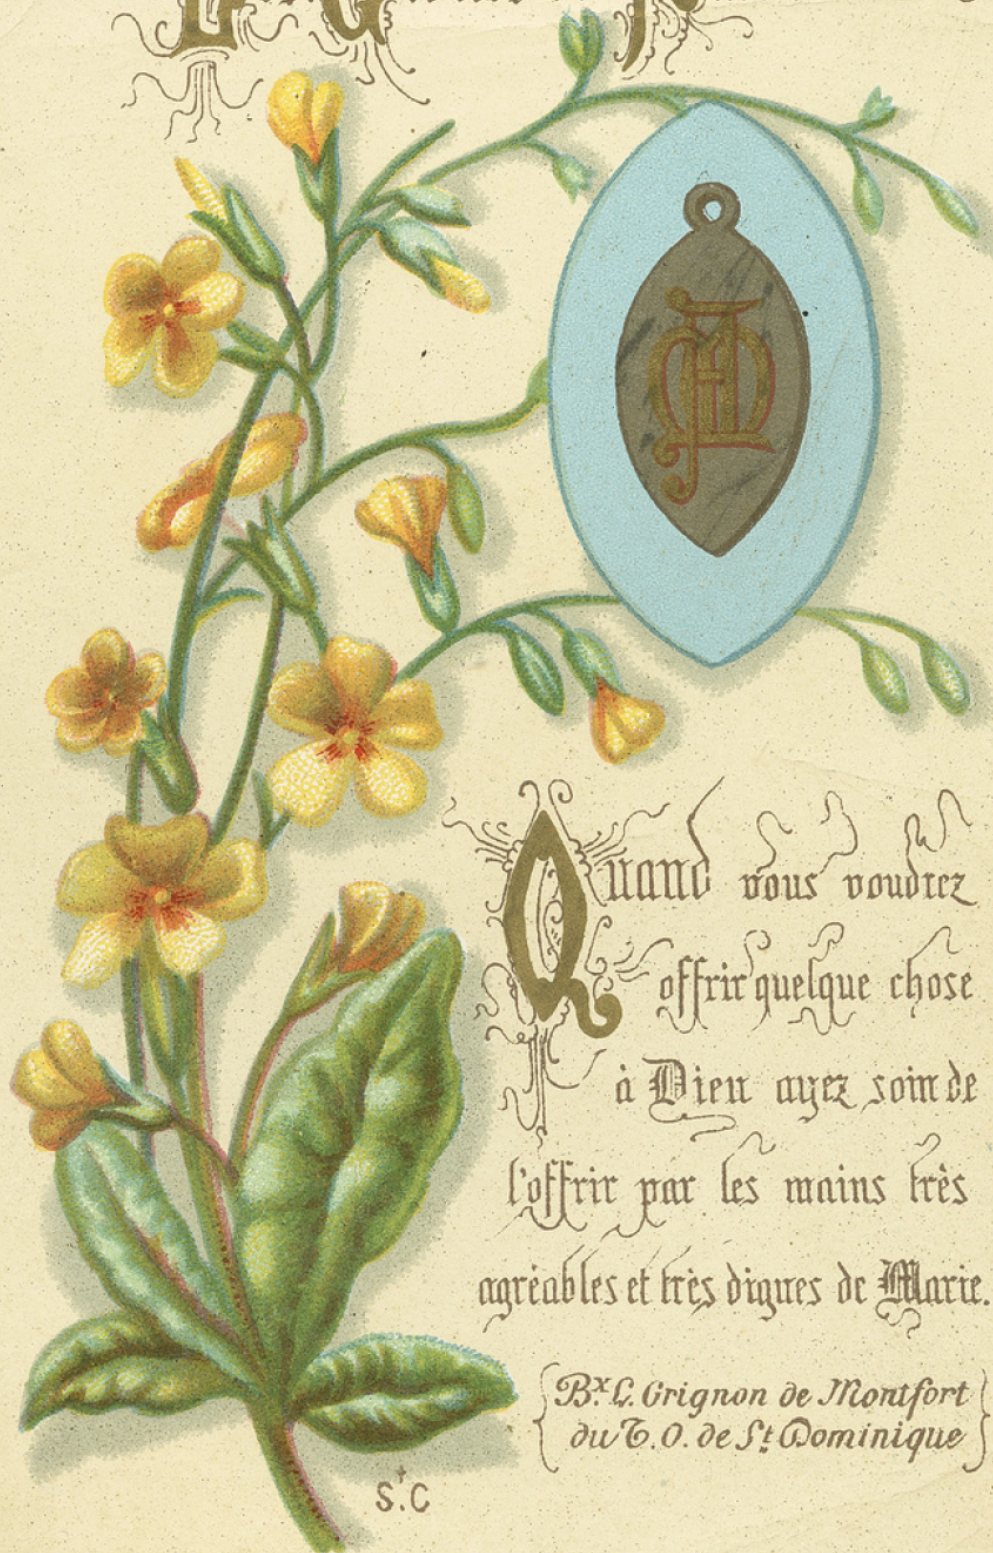 Quand vous voudrez
offrir quelque chose
à Dieu ayez soin de
l'offrir par les mains très
agréables et très dignes de Marie.
Bx L. Grignon de Montfort
du T. O. de St Dominique
S.C